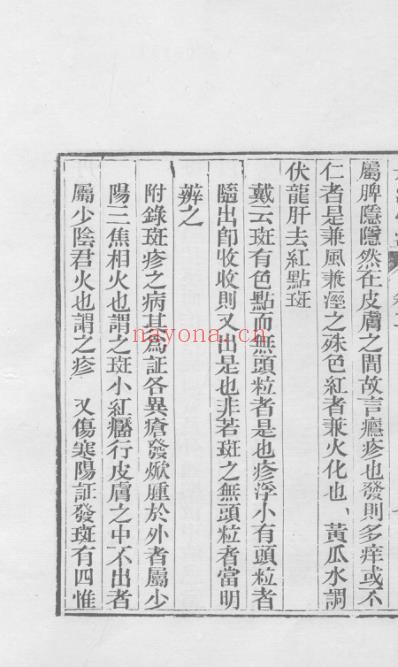 屬脾隱隱然在皮膚之間故言癮疹也發則多痒或不
仁者是兼風兼溼之殊色紅者兼火化也、黃瓜水調
伏龍肝去紅點斑
戴云斑有色點而無頭粒者是也疹浮小有頭粒者
隨出卽收收則又出是也非若斑之無頭粒者當明
辨之
附錄斑疹之病其爲証各異瘡發焮腫於外者屬少
陽三焦相火也謂之斑小紅靨行皮膚之中不出者
屬少陰君火也謂之疹 又傷寒陽証發斑有四惟
nayona.cn